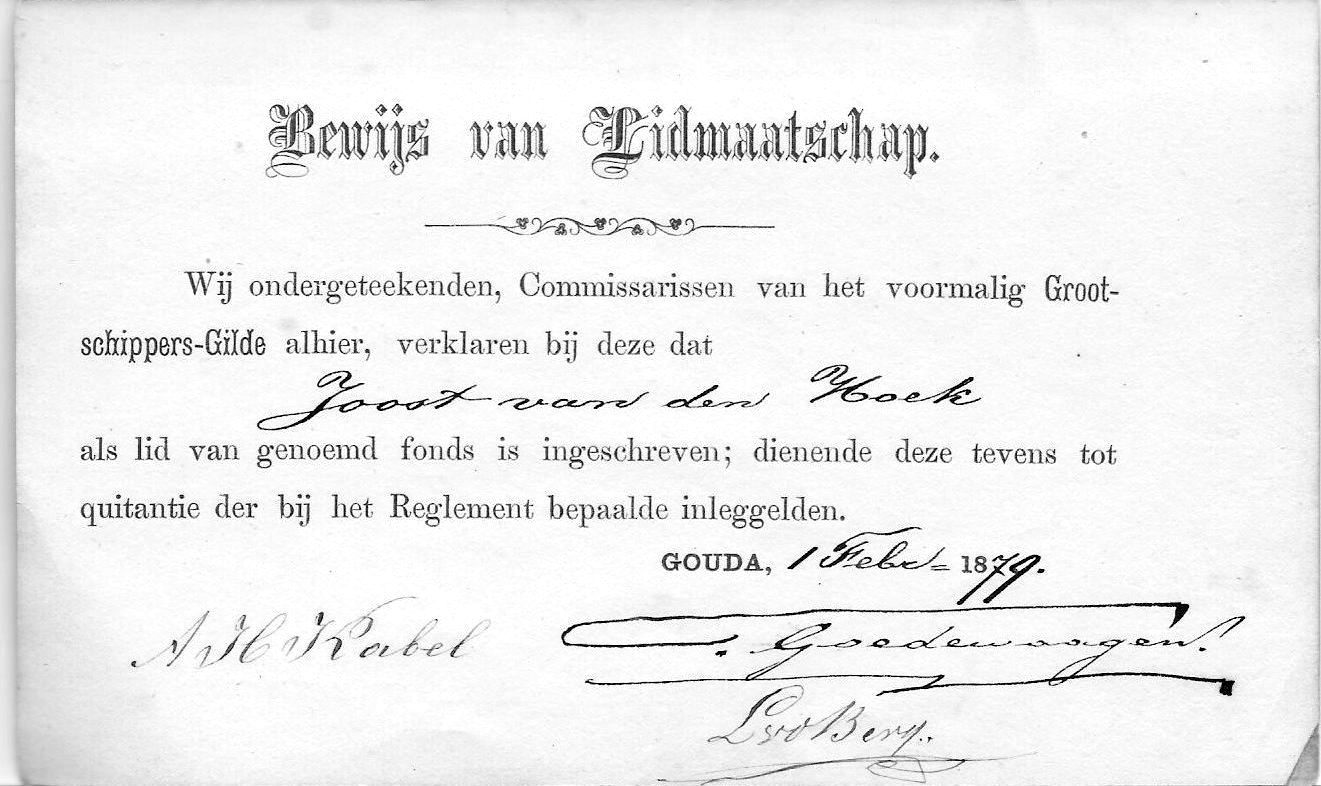 Bewijs van Lidmaatschap.
Wij ondergeteekenden, Commissarissen van het voormalig Groot-
schippers-Gilde alhier, verklaren bij deze dat
Joost van den Hoek
als lid van genoemd fonds is ingeschreven; dienende deze tevens tot
quitantie der bij het Reglement bepaalde inleggelden.
GOUDA, 1 Febr 1879.
A H Kabel
Goedewaagen
LvdBerg.